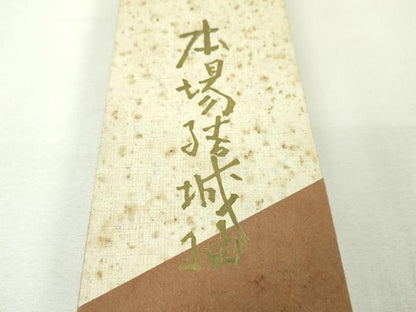 本場結城紬